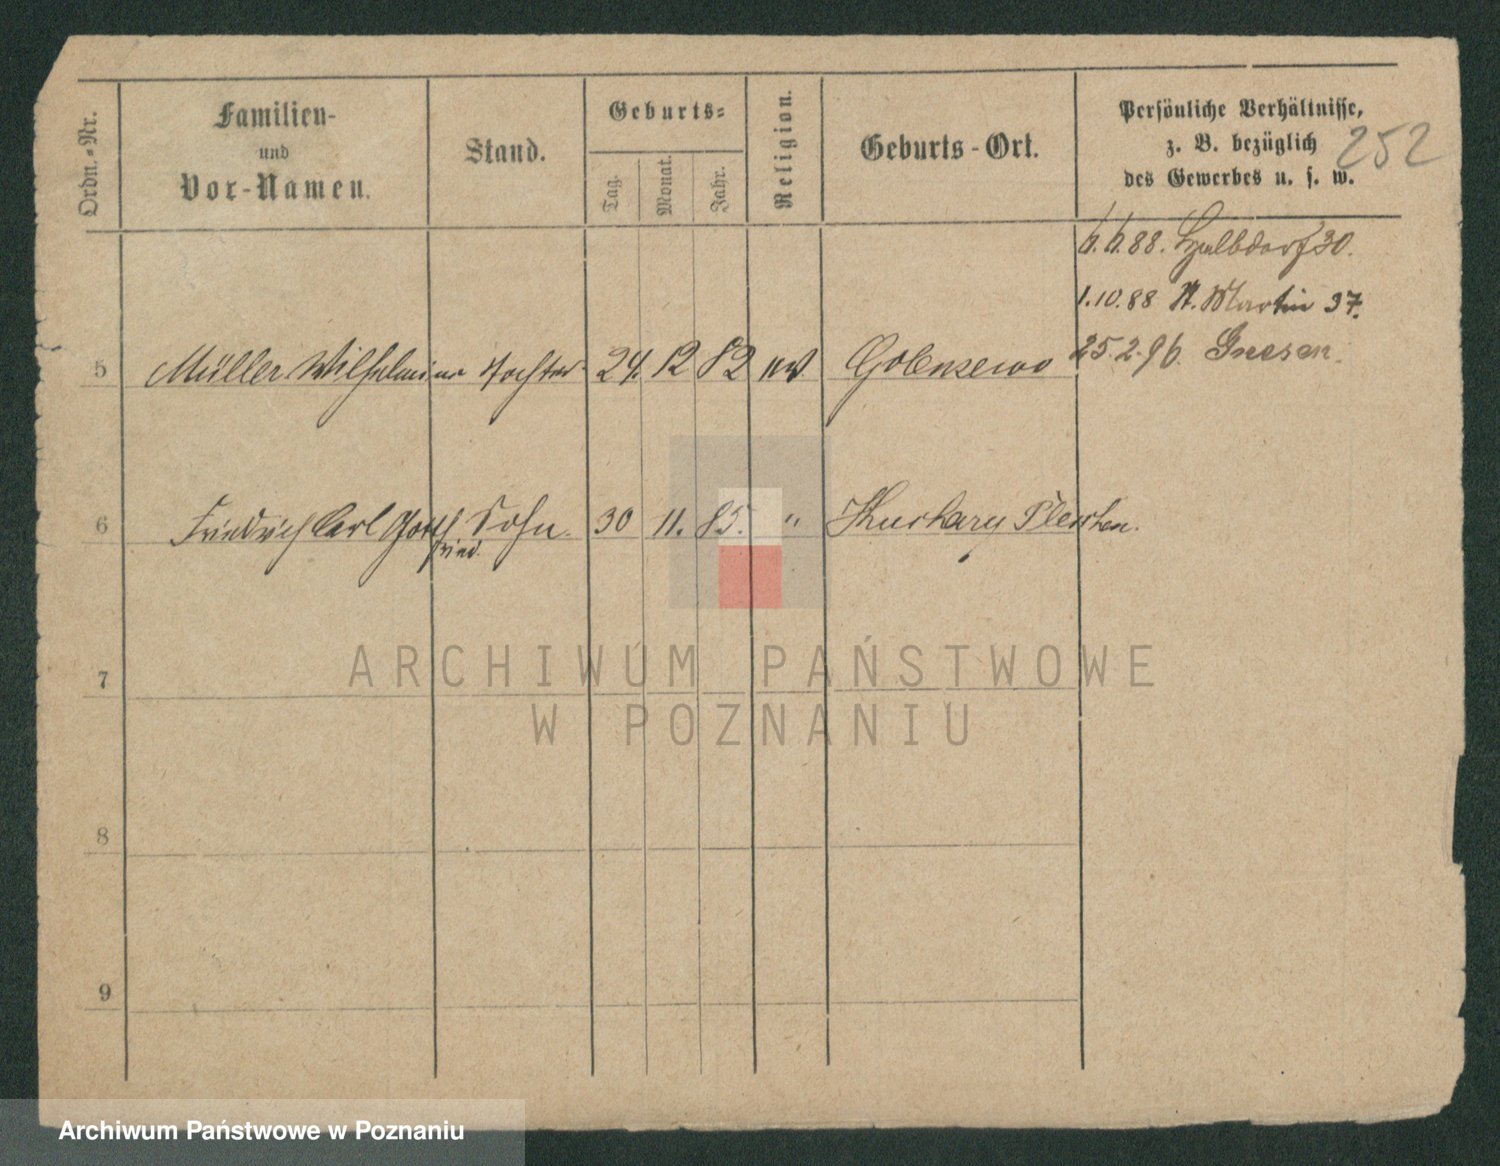 Ordn.-Nr.
Familien-
und
Vor-Namen.
Stand.
Geburts-
Tag.
Monat.
Jahr.
Religion.
Geburts-Ort.
Persönliche Verhältnisse,
z. B. bezüglich
des Gewerbes u. s. w.
252
6.6.88. Halbdorf 30.
1.10.88 St. Martin 37.
25.2.96. Gnesen.
5 Müller Wilhelmine Tochter 24. 12 82 ev. Golenzewo
6 Friedrich Carl Gott Sohn. 30 11. 85. " Pleschen.
fried.
7
ARCHIWUM PAŃSTWOWE
W POZNANIU
8
9
Archiwum Państwowe w Poznaniu